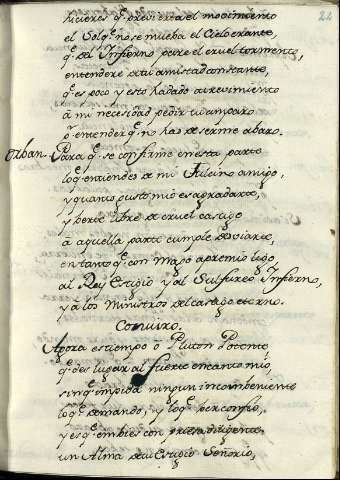 22
hicieres q.e previerta el movimiento
el Sol q.e no se mueba el Cielo errante,
q.e del Infierno pare el cruel tormento,
entendere será amistad constante,
q.e es poco y esto ha dado atrevimiento
á mi necesidad pedir tu amparo
q.e entender q.e no has de serme abaro.
Orban. Para q.e se confirme en esta parte
lo q.e entiendes de mi Fulcino amigo,
y quanto gusto mio es agradarte,
y verte libre de cruel castigo
á aquella parte cumple desviarte,
en tanto q.e con apremio ligo,
al Rey Estigio y al Sulfureo Infierno,
y á los Ministros del castigo eterno.
Conjuro.
Agora es tiempo ó Pluton Potente
q.e des lugar al fuerte encanto mio,
sin q.e impida ningun incombeniente
lo q.e demando, y lo q.e hacer confio,
y es q.e embies con presta diligencia
un Alma de tu Estigio Señorio,